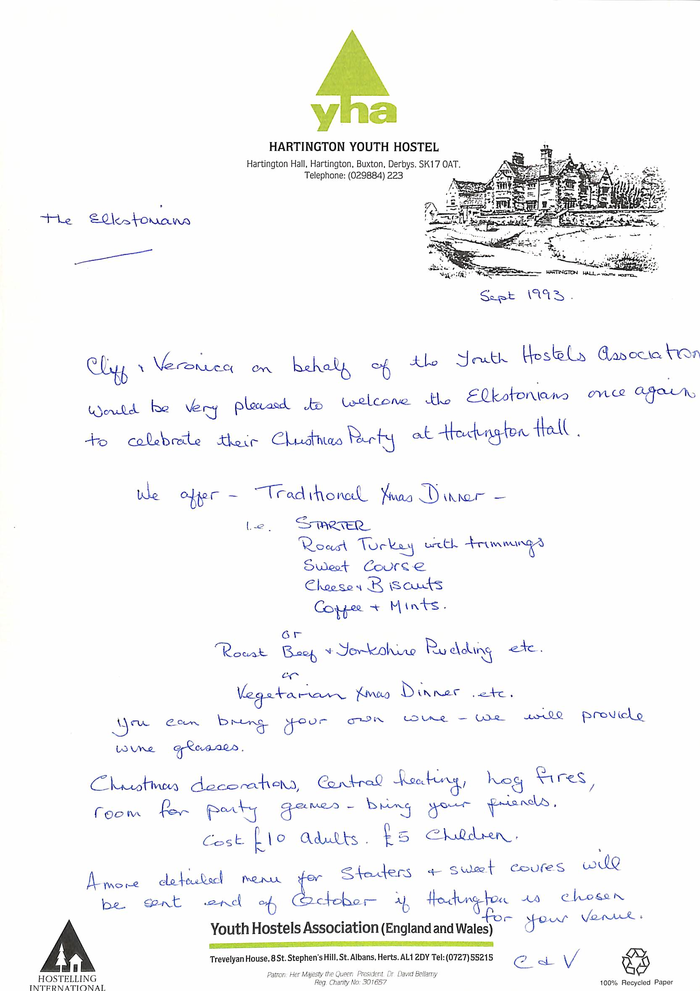 yha
HARTINGTON YOUTH HOSTEL
Hartington Hall, Hartington, Buxton, Derbys. SK17 0AT.
Telephone: (029884) 223
HARTINGTON HALL - YOUTH HOSTEL
The Elkstonians
Sept 1993.
Cliff & Veronica on behalf of the Youth Hostels Association
would be very pleased to welcome the Elkstonians once again
to celebrate their Christmas Party at Hartington Hall.
We offer - Traditional Xmas Dinner -
i.e. STARTER
Roast Turkey with trimmings
Sweet Course
Cheese & Biscuits
Coffee + Mints.
or
Roast Beef + Yorkshire Pudding etc.
or
Vegetarian Xmas Dinner .etc.
You can bring your own wine - we will provide
wine glasses.
Christmas decorations, Central heating, log fires,
room for party games - bring your friends.
Cost £10 Adults. £5 Children.
A more detailed menu for Starters + sweet coures will
be sent end of October if Hartington is chosen
for your venue.
C & V
Youth Hostels Association (England and Wales)
Trevelyan House, 8 St. Stephen's Hill, St. Albans, Herts. AL1 2DY Tel: (0727) 55215
Patron: Her Majesty the Queen President: Dr. David Bellamy
Reg. Charity No: 301657
HOSTELLING
INTERNATIONAL
100% Recycled Paper